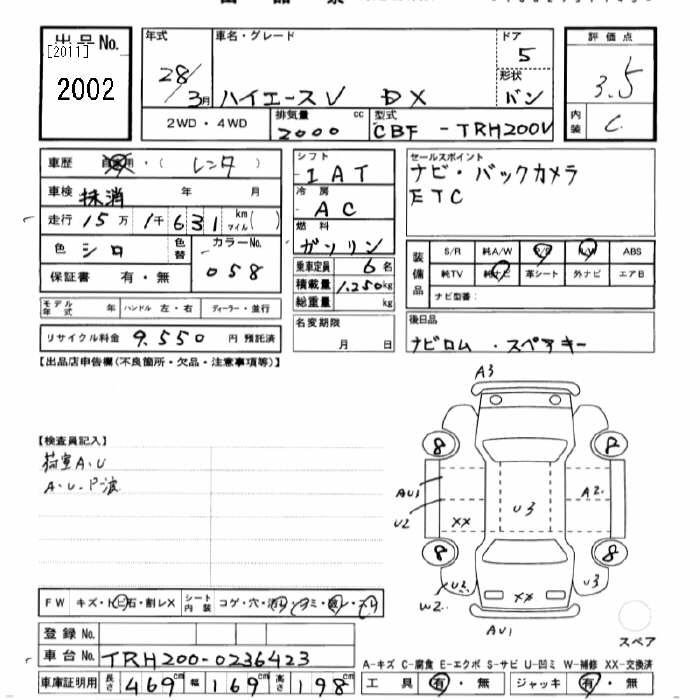 出品票
出品No.
[2011]
2002
年式
28/3月
車名・グレード
ハイエースV DX
ドア
5
形状
バン
評価点
3.5
内装
C
2WD・4WD
排気量 cc
2000
型式
CBF - TRH200V
車歴 自家用・( レンタ )
車検 抹消 年 月
走行 15万 1千 631 km マイル( )
色 シロ 色替 カラーNo. 058
保証書 有・無
モデル年式 年 ハンドル 左・右 ディーラー・並行
リサイクル料金 9.550 円 預託済
シフト
IAT
冷房
AC
燃料
ガソリン
乗車定員 6名
積載量 1.250kg
総重量 kg
名変期限
月 日
セールスポイント
ナビ・バックカメラ
ETC
装備品
S/R 純A/W P/S P/W ABS
純TV 純ナビ 革シート 外ナビ エアB
ナビ型番:
後日品
ナビロム・スペアキー
【出品店申告欄(不良箇所・欠品・注意事項等)】
【検査員記入】
荷室A.U
A.U.P波
A3
8 P
AU1 A2
U2 XX U3
8 8
U2 XX U3
W2
AU1
スペア
FW キズ・トビ石・割レX シート内装 コゲ・穴・汚レ・シミ・破レ・スレ
登録No.
車台No. TRH200-0236423
車庫証明用 長さ 469cm 幅 169cm 高さ 198cm
A-キズ C-腐食 E-エクボ S-サビ U-凹ミ W-補修 XX-交換済
工具 有・無 ジャッキ 有・無